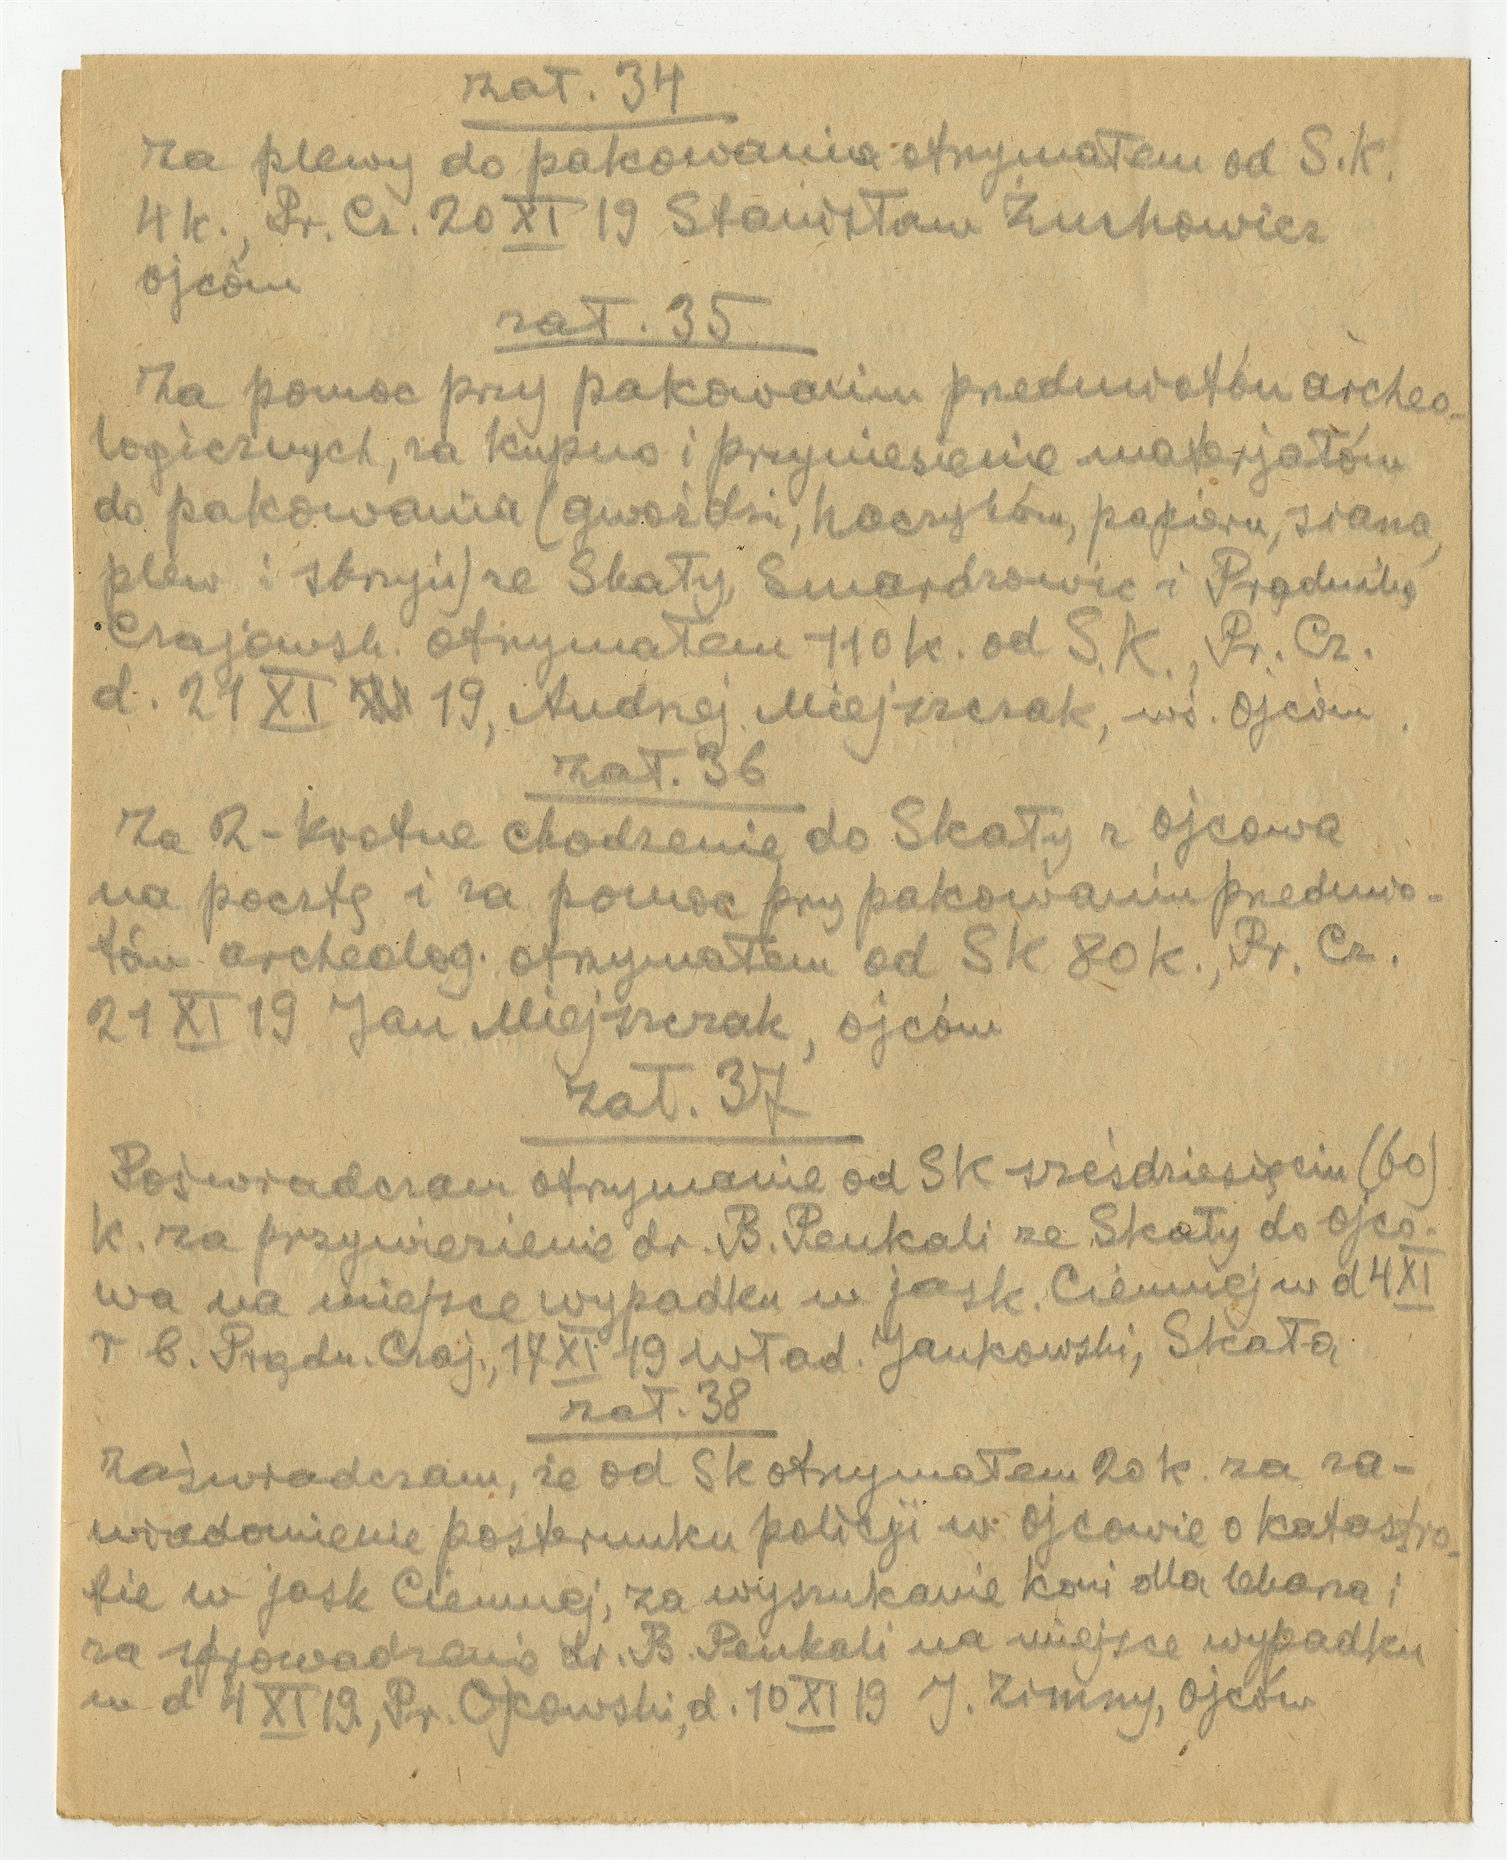 zał. 34
Za plewy do pakowania otrzymałem od S.K.
4 k., Pr. Cz. 20 XI 19 Stanisław Żuchowicz
Ojców
zał. 35
Za pomoc przy pakowaniu przedmiotów archeo-
logicznych, za kupno i przyniesienie materjałów
do pakowania (gwoździ, haczyków, papieru, siana,
plew i skrzyń) ze Skały, Smardzowic i Prądnika
Czajowsk. otrzymałem 110 k. od S.K., Pr. Cz.
d. 21 XI 19, Andrzej Miejszczak, wś. Ojców.
zał. 36
Za 2-krotne chodzenie do Skały z Ojcowa
na pocztę i za pomoc przy pakowaniu przedmio-
tów archeolog. otrzymałem od SK 80 k., Pr. Cz.
21 XI 19 Jan Miejszczak, Ojców
zał. 37
Poświadczam otrzymanie od SK sześdziesięciu (60)
k. za przywiezienie dr. B. Penkali ze Skały do Ojco-
wa na miejsce wypadku w jask. Ciemnej w d 4 XI
r b. Prądn. Czaj., 17 XI 19 Wład. Jankowski, Skała
zał. 38
Zaświadczam, że od SK otrzymałem 20 k. za za-
wiadomienie posterunku policji w Ojcowie o katastro-
fie w jask Ciemnej, za wyszukanie koni dla lekarza i
za sprowadzenie dr. B. Penkali na miejsce wypadku
w d 4 XI 19., Pr. Ojcowski, d. 10 XI 19 J. Zimny, Ojców